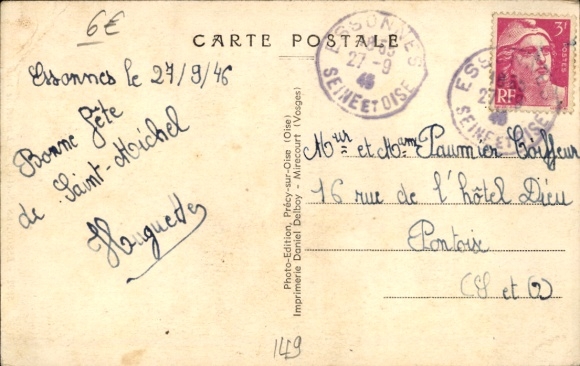 6€
CARTE POSTALE
ESSONNES
27-9
46
SEINE ET OISE
3F
POSTES
RF
ESSONNES
27-9
46
SEINE ET OISE
Essonnes le 27/9/46
Bonne fête
de Saint-Michel
Huguette
Photo-Edition, Précy-sur-Oise (Oise)
Imprimerie Daniel Delboy - Mirecourt (Vosges)
Mur et Mam Paumier Coiffeur
16 rue de l'hôtel Dieu
Pontoise
(S et O)
149